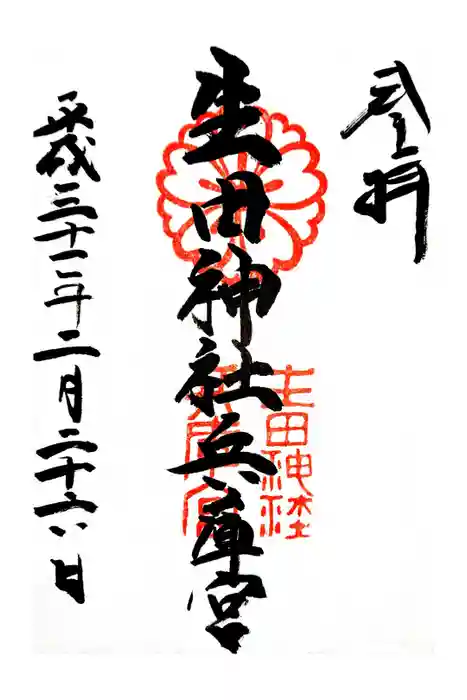 登拝
生田神社兵庫宮
生田神社
兵庫宮
平成三十一年二月二十六日